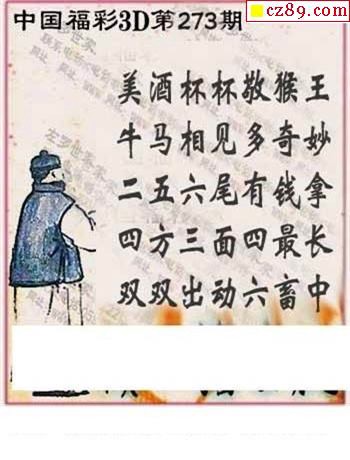 cz89.com
中国福彩3D第273期
美酒杯杯敬猴王
牛马相见多奇妙
二五六尾有钱拿
四方三面四最长
双双出动六畜中